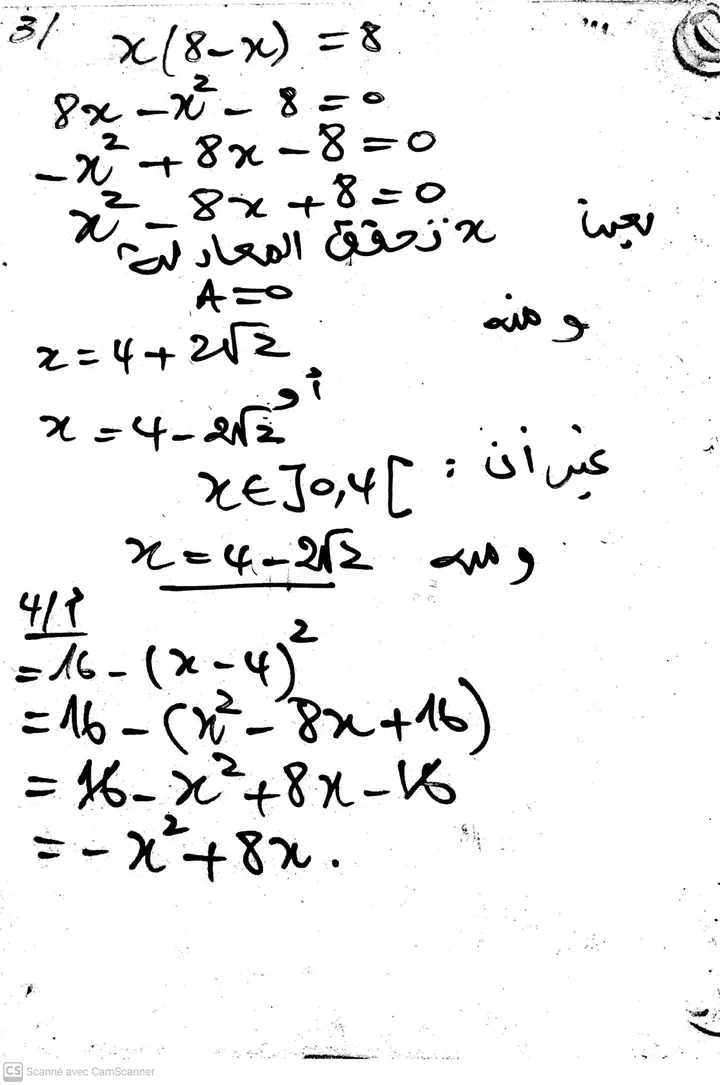 3/ x(8-x) = 8
8x - x² - 8 = 0
-x² + 8x - 8 = 0
x² - 8x + 8 = 0
بحيث x تحقق المعادلة
A = 0
ومنه
x = 4 + 2√2
أو
x = 4 - 2√2
غير أن : x ∈ ]0,4[
ومنه x = 4 - 2√2
4/أ
= 16 - (x - 4)²
= 16 - (x² - 8x + 16)
= 16 - x² + 8x - 16
= - x² + 8x .
CS Scanné avec CamScanner